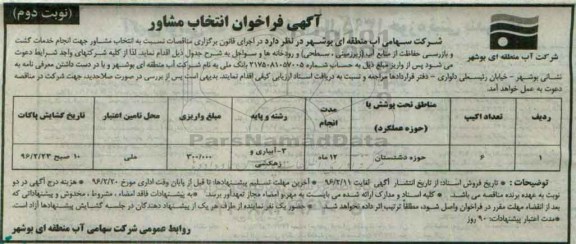 (نوبت دوم)
آگهی فراخوان انتخاب مشاور
شرکت سهامی آب منطقه ای بوشهر در نظر دارد در اجرای قانون برگزاری مناقصات نسبت به انتخاب مشاور جهت انجام خدمات گشت
و بازرسی حفاظت از منابع آب (زیرزمینی، سطحی) و رودخانه ها و سواحل به شرح جدول ذیل اقدام نماید. لذا از کلیه شرکتهای واجد شرایط دعوت
می شود پس از واریز مبلغ ذیل به حساب شماره ۲۱۷۵۰۸۱۰۵۷۰۰۵ بانک ملی به نام شرکت آب منطقه ای بوشهر و با در دست داشتن معرفی نامه به
نشانی بوشهر - خیابان رئیسعلی دلواری - دفتر قراردادها مراجعه و نسبت به دریافت اسناد ارزیابی کیفی اقدام نمایند. بدیهی است پس از بررسی در صورت صلاحدید، جهت شرکت در مناقصه
دعوت به عمل خواهد آمد.
شرکت آب منطقه ای بوشهر
ردیف | تعداد اکیپ | مناطق تحت پوشش یا (حوزه عملکرد) | مدت انجام | رشته و پایه | مبلغ واریزی | محل تامین اعتبار | تاریخ گشایش پاکات
۱ | ۶ | حوزه دشتستان | ۱۲ ماه | ۳-آبیاری و زهکشی | ۳۰۰/۰۰۰ | ملی | ۱۰ صبح ۹۶/۲/۲۳
ParsNamadData
توضیحات: * تاریخ فروش اسناد: از تاریخ انتشار آگهی لغایت ۹۶/۲/۱۱ * آخرین مهلت تسلیم پیشنهادها: تا قبل از پایان وقت اداری مورخ ۹۶/۲/۲۰ * هزینه درج آگهی در دو
نوبت به عهده برنده مناقصه می باشد. * کلیه اسناد و مدارک ارائه شده می بایست به مهر و امضاء مجاز تعهدآور برسد. * به پیشنهادات فاقد امضاء، مشروط، مخدوش و پیشنهاداتی که
بعد از انقضاء مهلت مقرر در فراخوان واصل شود، مطلقاً ترتیب اثر داده نخواهد شد. * حضور یک نفر نماینده از طرف هر یک از پیشنهاد دهندگان در جلسه گشایش پیشنهادها آزاد است.
* مدت اعتبار پیشنهادات: ۹۰ روز
روابط عمومی شرکت سهامی آب منطقه ای بوشهر